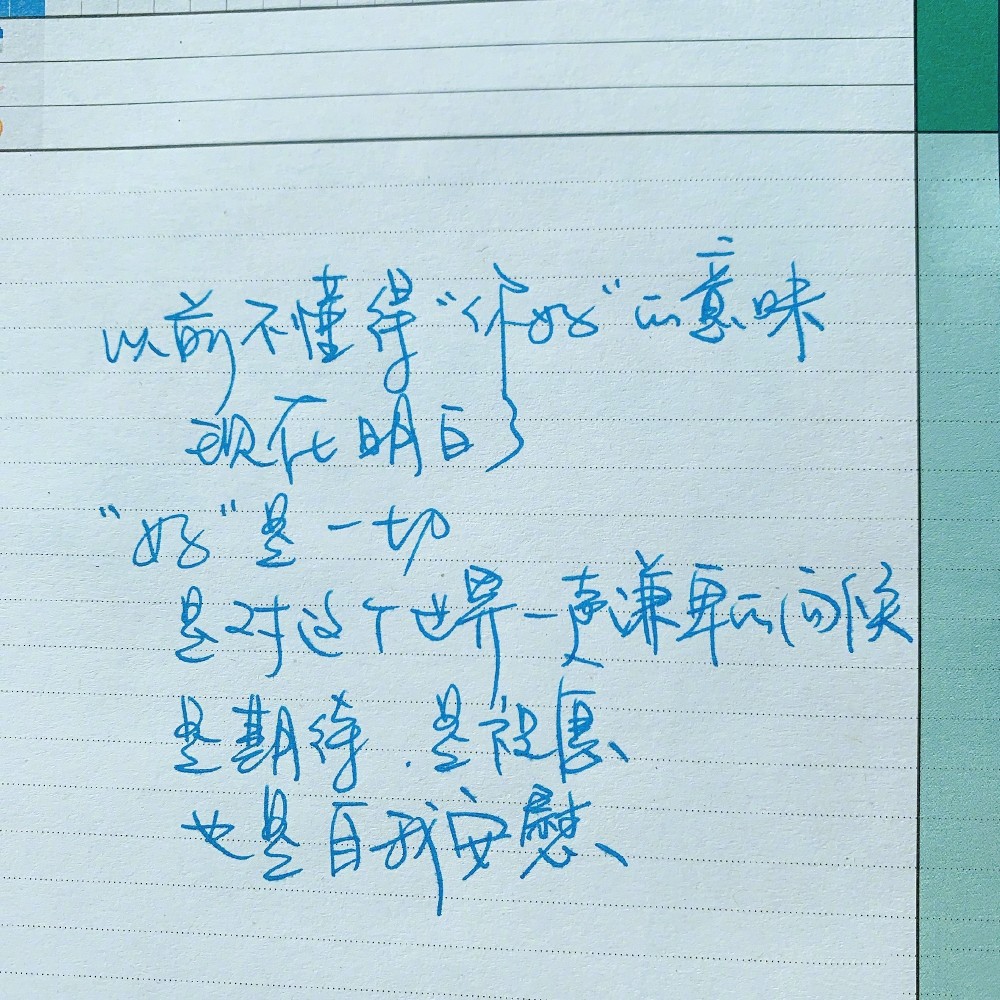 以前不懂得“你好”的意味
现在明白了
“好”是一切
是对这个世界一声谦卑的问候
是期待.是祝愿、
也是自我安慰、